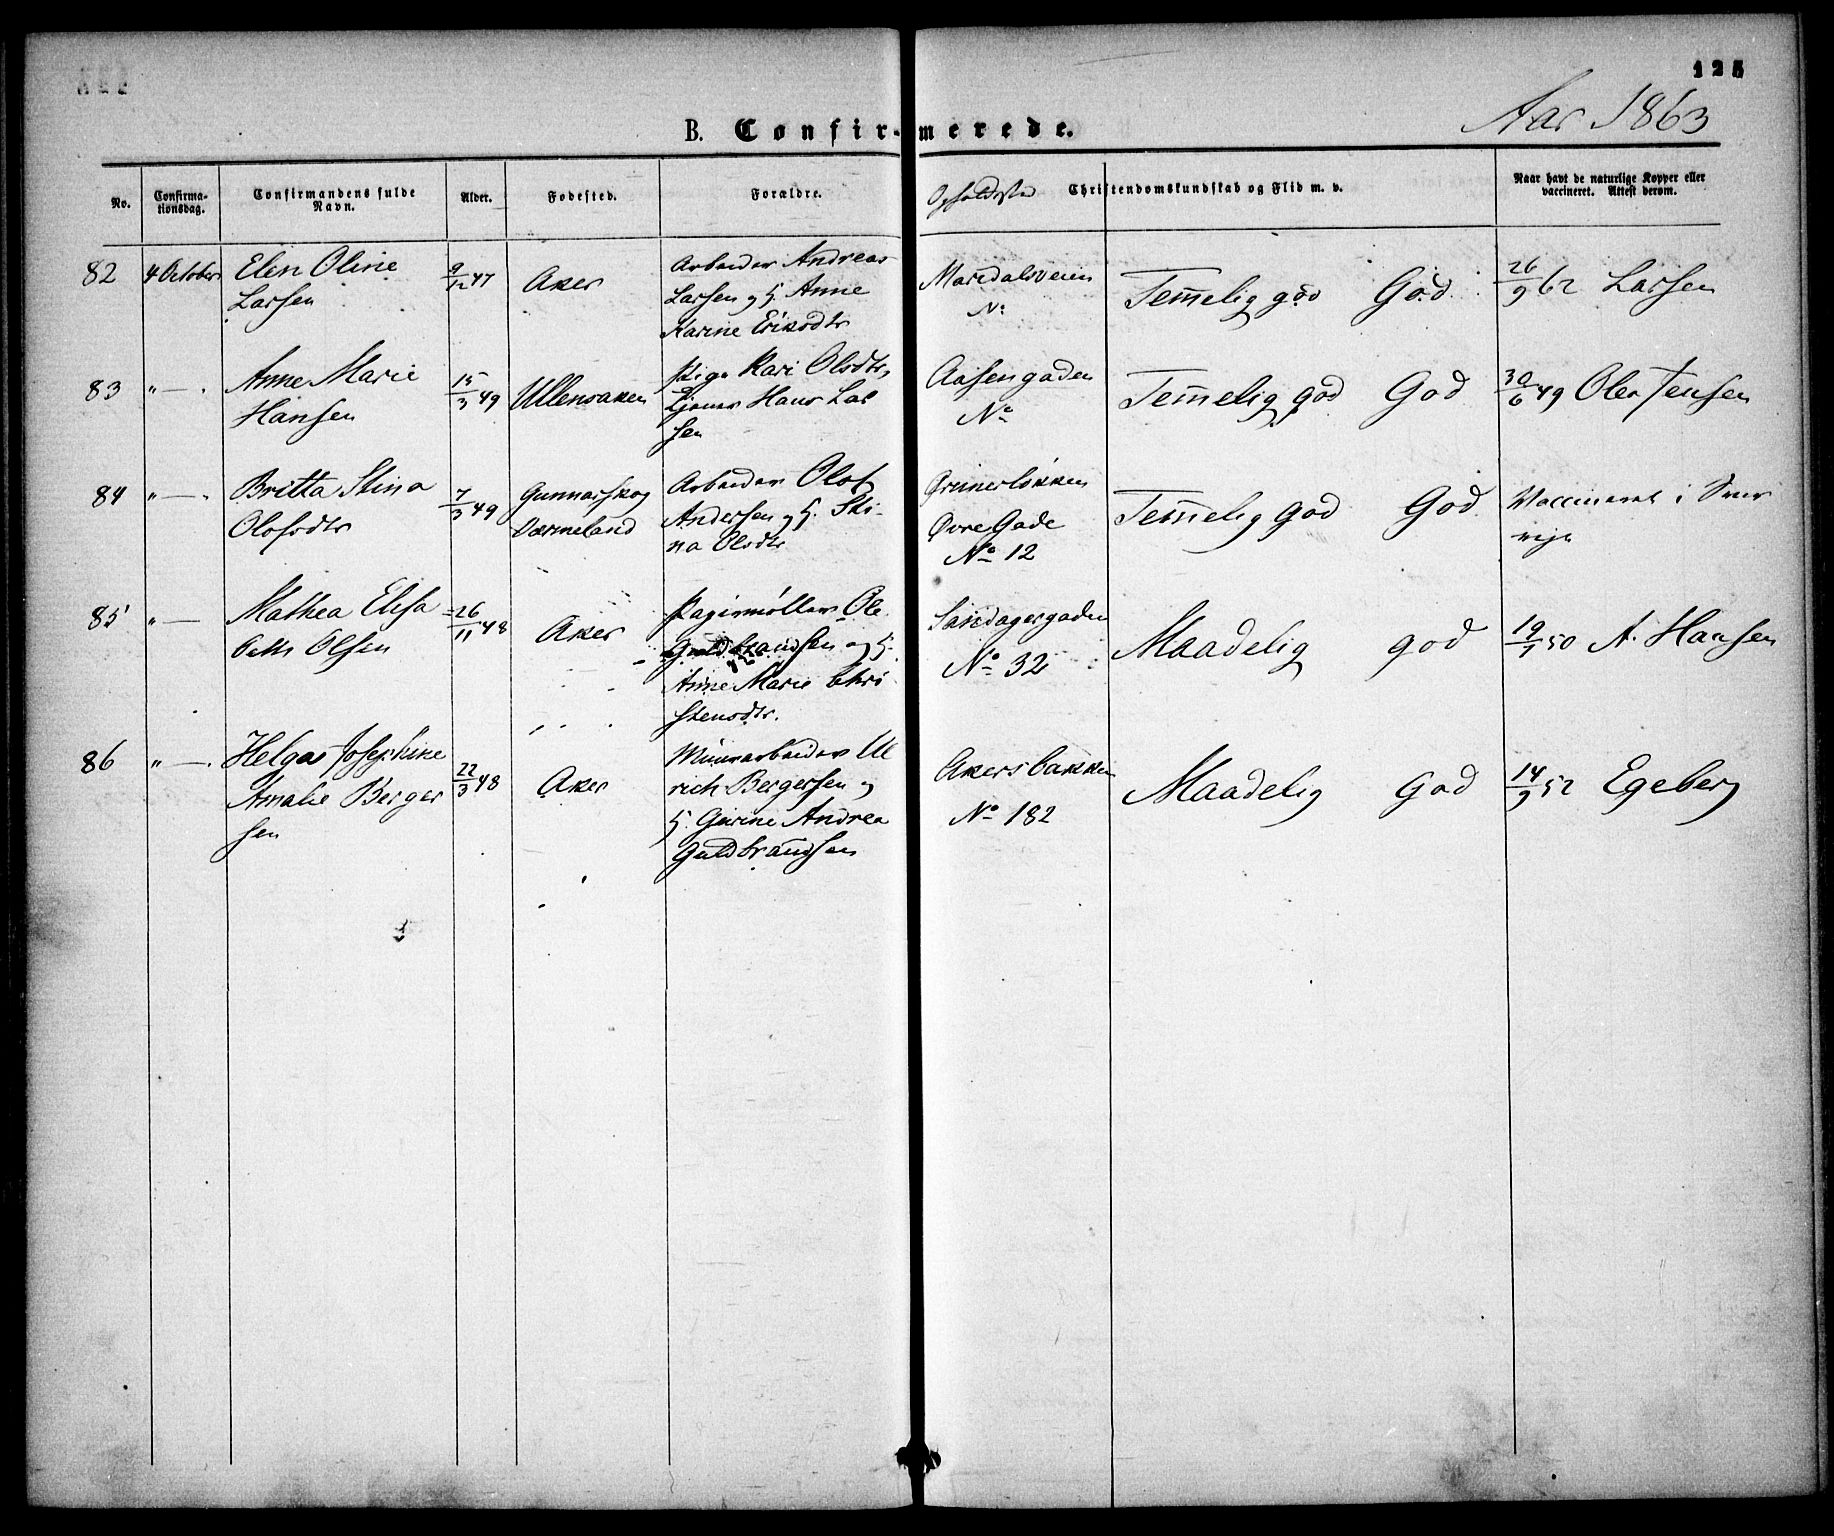 125
Aar 1863
B. Confirmerede.
No.
Confirma-
tionsdag.
Confirmandens fulde
Navn.
Alder.
Fødested.
Forældre.
Opholdssted
Christendomskundskab og Flid m. v.
Naar havt de naturlige Kopper eller
vaccineret. Attest derom.
82 4 October Elen Oline
Larsen
9/12 47
Aker
Arbeider Andreas
Larsen og H. Anne
Karine Eriksdtr
Maridalsveien
No
Temelig god God
26/9 62 Larsen
83 " — . Anne Marie
Hansen
15/3 49
Ullensaker
Pige Kari Olsdtr,
Hans Lar
sen
Aasengaden
No
Temelig god God
30/6 49 Ole Jensen
84 " — . Britta Stina
Olofsdtr
7/3 49
Gunnarskog
Værmeland
Arbeider Olof
Andersen og H. Sti-
na Olsdtr
Grünerløkken
Øvre Gade
No 12
Temelig god God
Vaccineret i Sver
rige
85 " — Mathea Elisa
beth Olsen
26/11 48
Aker
Papirmøller Ole
Guldbrandsen og H.
Anne Marie Chri
stensdtr.
Sandagergaden
No 32
Maadelig god
19/7 50 A. Hansen
86 " — . Helga Josephine
Amalie Berger
sen
22/3 48
Aker
Muurarbeider Ul
rich Bergersen og
H. Gurine Andrea
Guldbrandsen
Akersbakken
No 182
Maadelig God
14/9 52 Egeberg